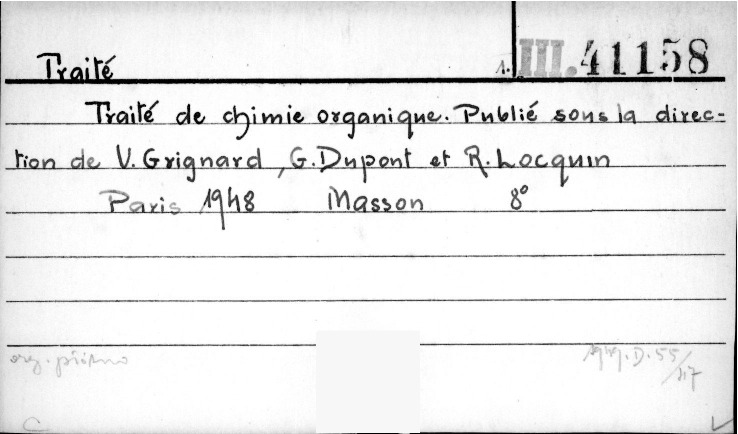 Traité
1. III. 41158
Traité de chimie organique. Publié sous la direc-
tion de V. Grignard, G. Dupont et R. Locquin
Paris 1948 Masson 8°
org.
1949.D.55/
C